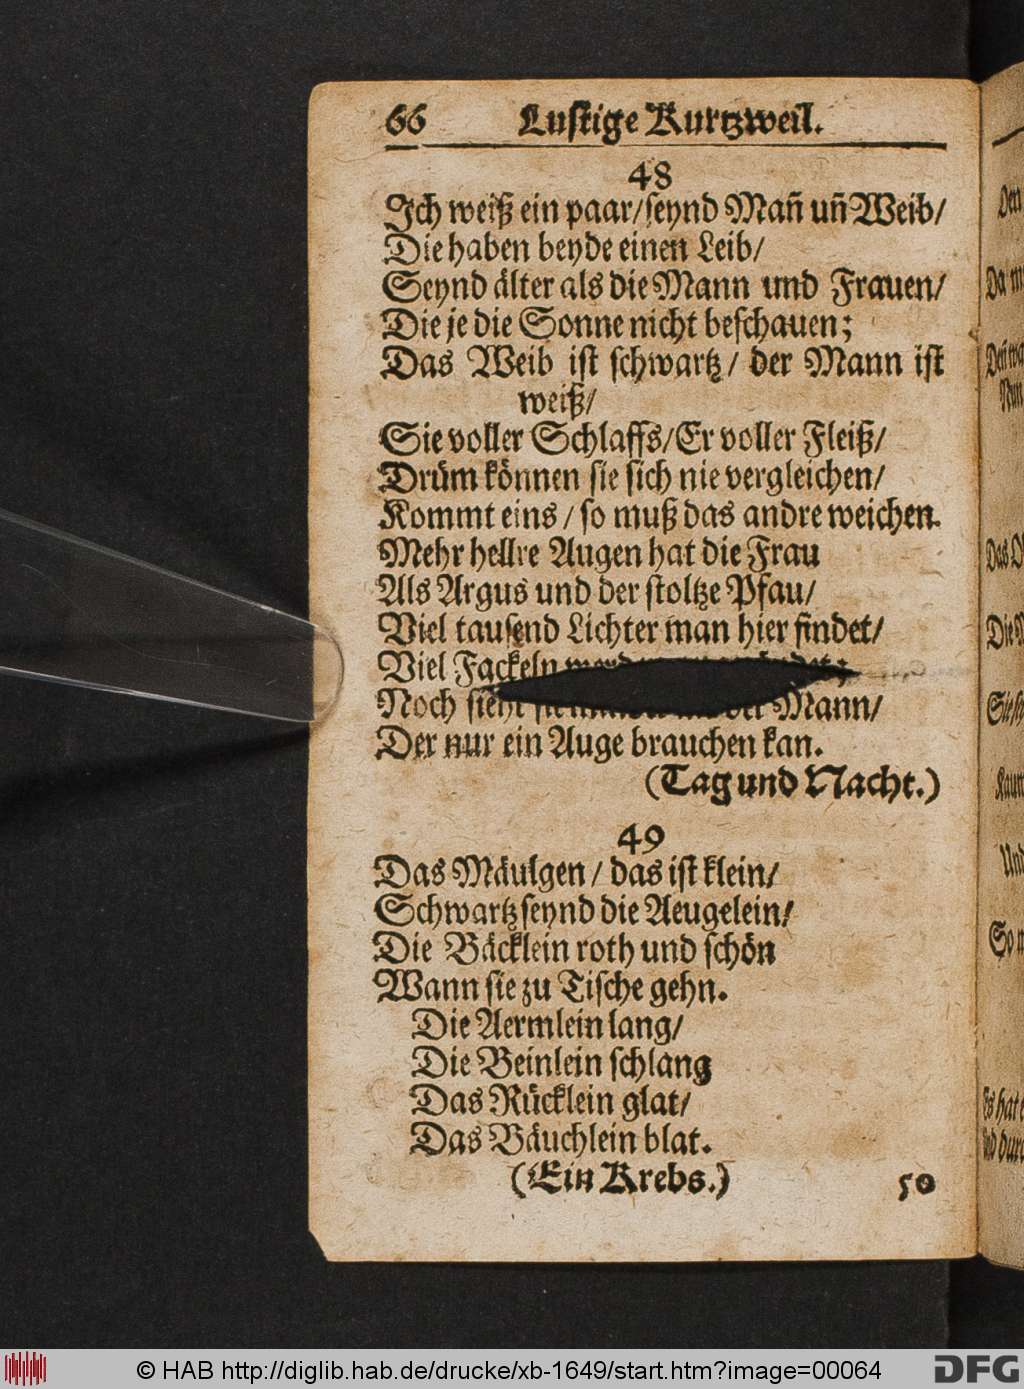 66 Lustige Kurtzweil.
48
Ich weiß ein paar/seynd Mañ uñ Weib/
Die haben beyde einen Leib/
Seynd älter als die Mann und Frauen/
Die je die Sonne nicht beschauen;
Das Weib ist schwartz/ der Mann ist
weiß/
Sie voller Schlaffs/Er voller Fleiß/
Drüm können sie sich nie vergleichen/
Kommt eins/ so muß das andre weichen.
Mehr hellre Augen hat die Frau
Als Argus und der stoltze Pfau/
Viel tausend Lichter man hier findet/
Viel Fackeln
Noch sieht der Mann/
Der nur ein Auge brauchen kan.
(Tag und Nacht.)
49
Das Mäulgen/ das ist klein/
Schwartz seynd die Aeugelein/
Die Bäcklein roth und schön
Wann sie zu Tische gehn.
Die Aermlein lang/
Die Beinlein schlang
Das Rücklein glat/
Das Bäuchlein blat.
(Ein Krebs.)
50
© HAB http://diglib.hab.de/drucke/xb-1649/start.htm?image=00064
DFG